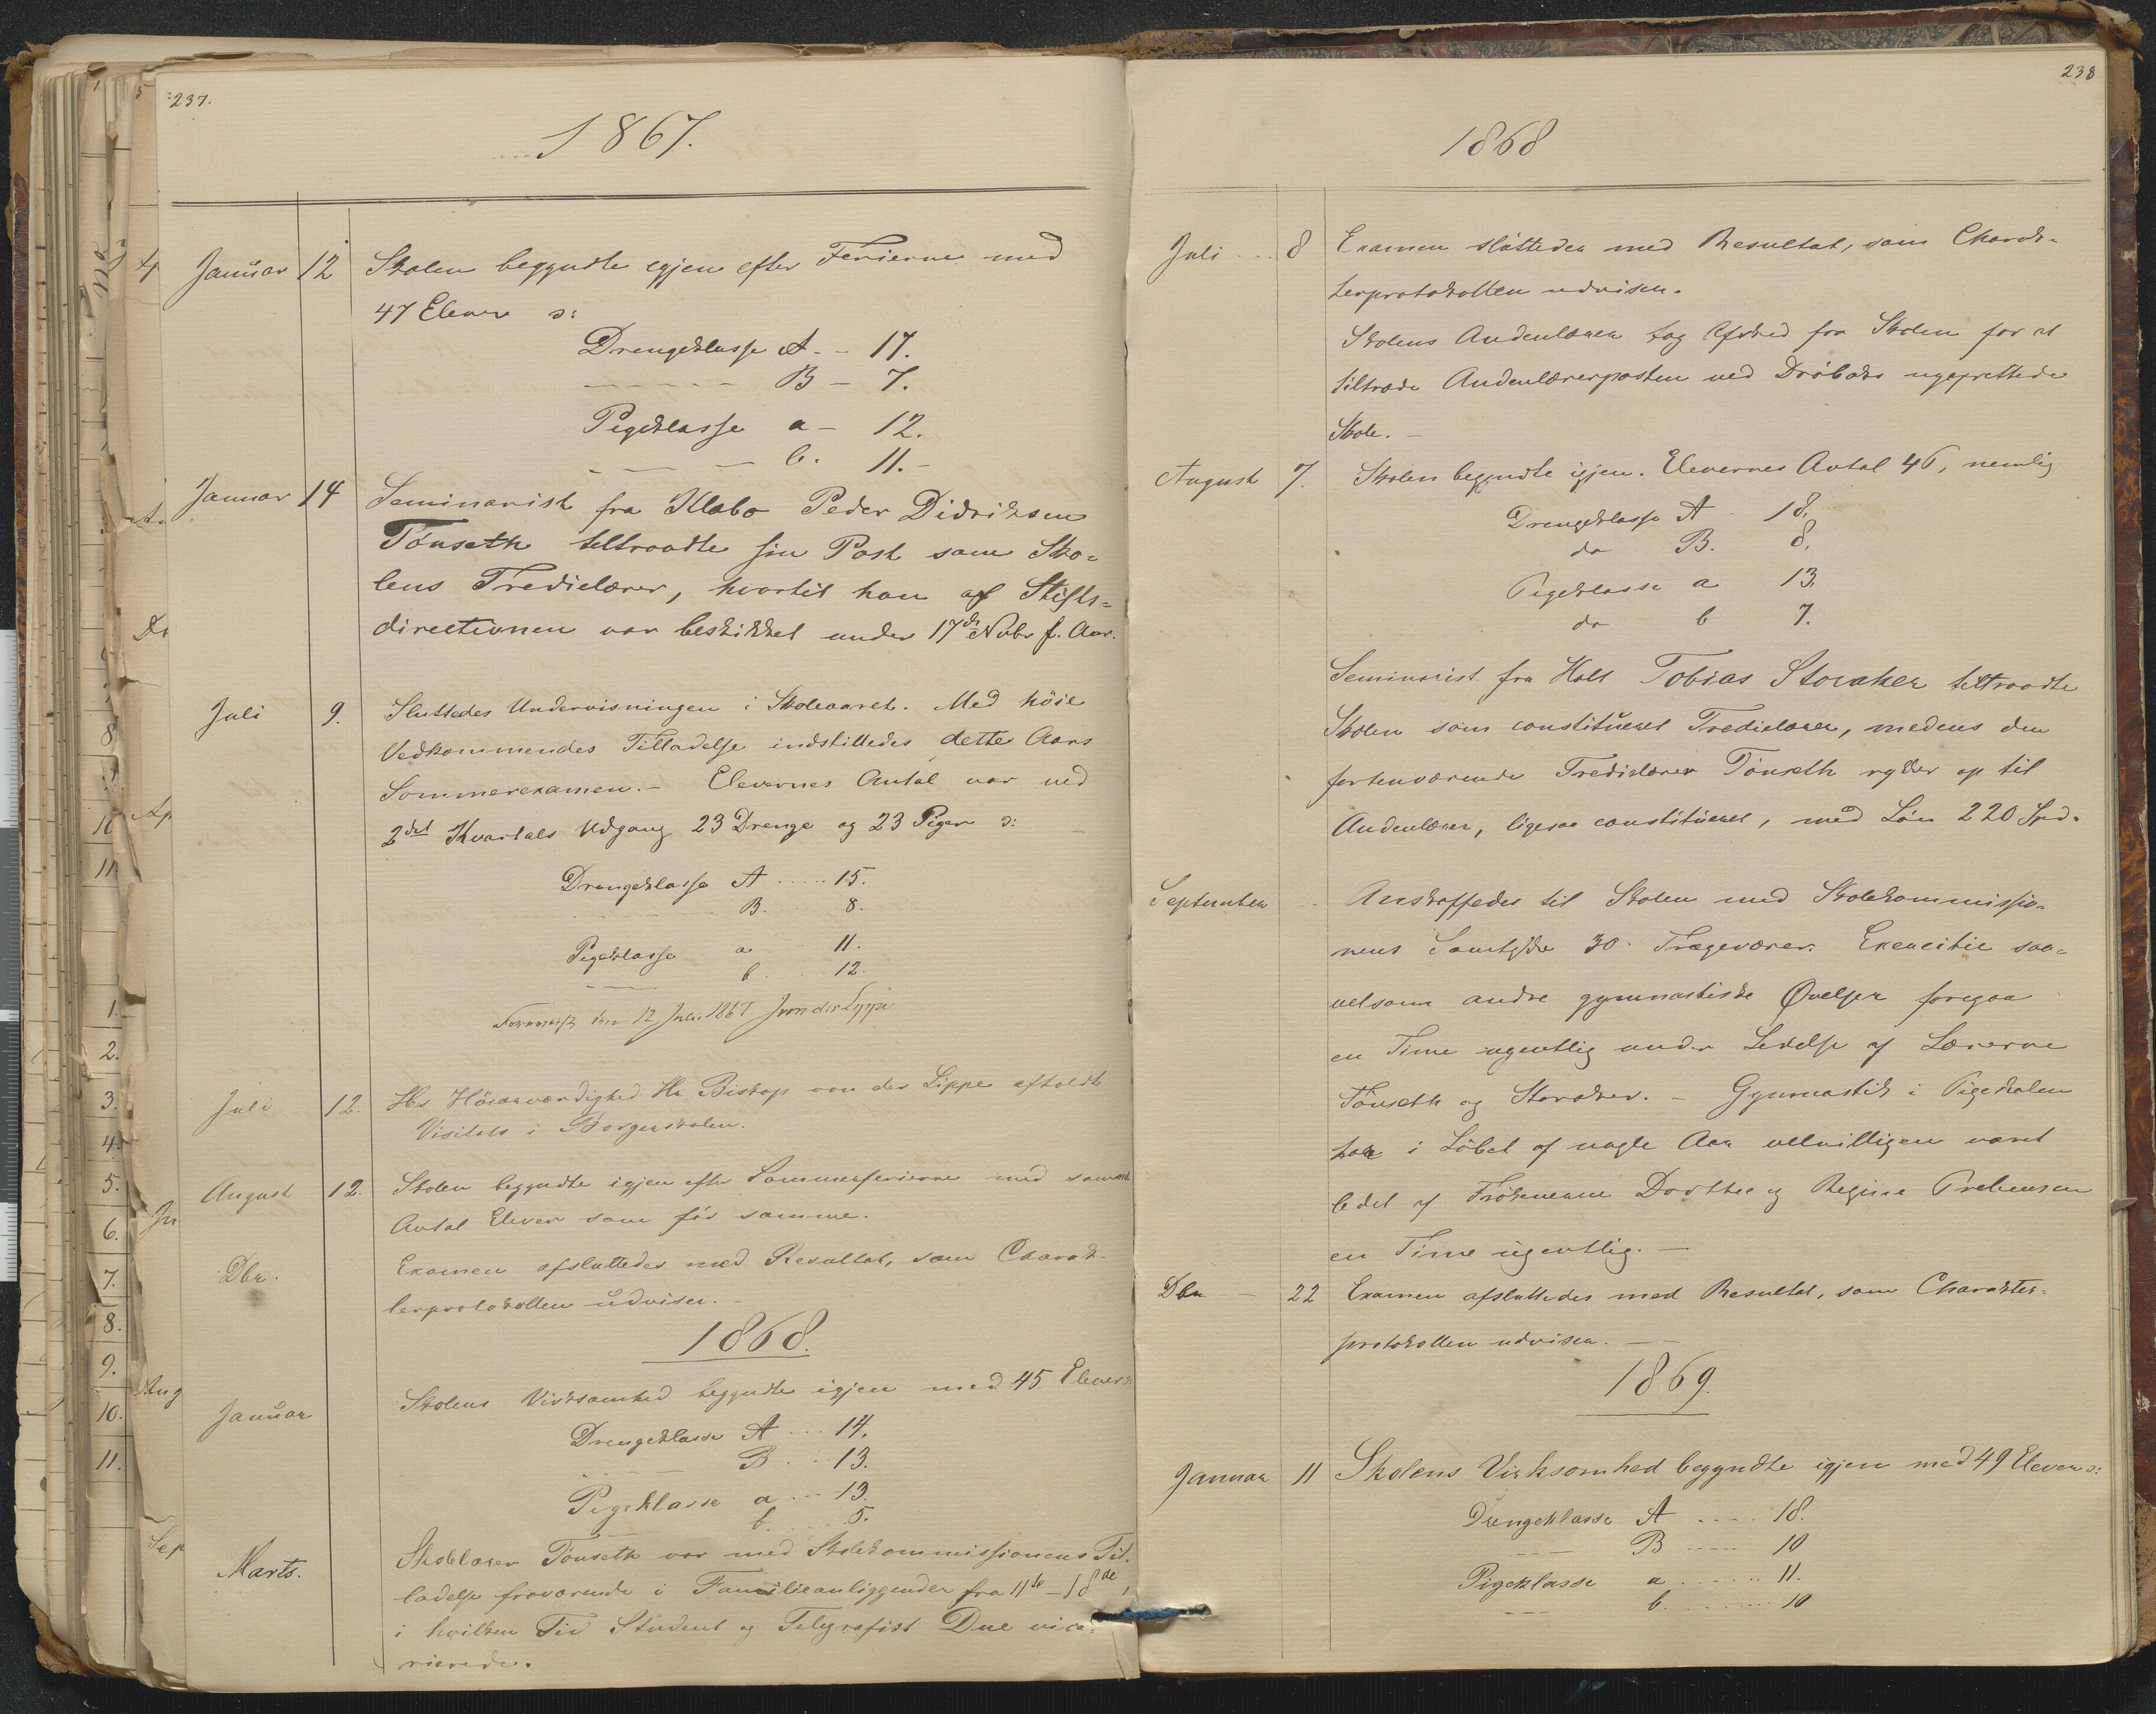 237.
1867.
Januar 12 Skolen begyndte igjen efter Ferierne med
47 Elever ɔ:
Drengeklasse A - - 17.
B - 7.
Pigeklasse a - 12.
b. 11. -
Januar 14 Seminarist fra Klæbo Peder Didriksen
Tönseth tiltraadte sin Post som Sko=
lens Tredielærer, hvortil han af Stifts=
directionen var beskikket under 17de Nvbr f. Aar.
Juli 9. Sluttedes Undervisningen i Skoleaaret. Med höie
Vedkommendes Tilladelse indstilledes dette Aars
Sommerexamen. - Elevernes Antal var ved
2det Kvartals Udgang 23 Drenge og 23 Piger ɔ:
Drengeklasse A ..... 15.
B. 8.
Pigeklasse a 11.
b. 12.
den 12 Juli 1867. J von der Lippe
Juli 12. Hs Höiærværdighed Hr Biskop von der Lippe afholdt
Visitats i Borgerskolen.
August 12. Skolen begyndte igjen efter Sommerferierne med samme
Antal Elever som för samme.
Dbr. Examen afsluttedes med Resultat, som Charak-
terprotokollen udviser. -
1868.
Januar Skolens Virksomhed begyndte igjen med 45 Elever ɔ:
Drengeklasse A ... 14.
B . . . 13.
Pigeklasse a ... 13.
b. 5.
Marts. Skolelærer Tönseth var med Skolekommissionens Til.
ladelse fraværende i Familieanliggender fra 11te - 18de,
i hvilken Tid Student og Telegrafist Due vica=
rierede.
238
1868
Juli 8 Examen sluttedes med Resultat, som Charak-
terprotokollen udviser.
Skolens Andenlærer tog Afsked fra Skolen for at
tiltræde Andenlærerposten ved Dröbaks nyoprettede
Skole. -
August 7. Skolen begyndte igjen. Elevernes Antal 46, nemlig
Drengeklasse A 18.
do B. 8.
Pigeklasse a 13.
do b 7.
Seminarist fra Holt Tobias Storaker tiltraadte
Skolen som constitueret Tredielærer, medens den
forhenværende Tredielærer Tönseth rykker op til
Andenlærer, ligesaa constitueret, med Lön 220 Spd.
September Anskaffedes til Skolen med Skolekommissio=
nens Samtykke 30 Trægeværer. Exercitie saa=
velsom andre gymnastiske Øvelser foregaa
en Time ugentlig under Ledelse af Lærerne
Tönseth og Storaker. - Gymnastik i Pigeskolen
har i Löbet af nogle Aar velvilligen været
ledet af Frökenerne Dorthea og Regine Prebensen
en Time ugentlig. -
Dbr 22 Examen afsluttedes med Resultat, som Charakter-
protokollen udviser. -
1869.
Januar 11 Skolens Virksomhed begyndte igjen med 49 Elever ɔ:
Drengeklasse A .... 18.
B ..... 10
Pigeklasse a ...... 11.
b. ....... 10